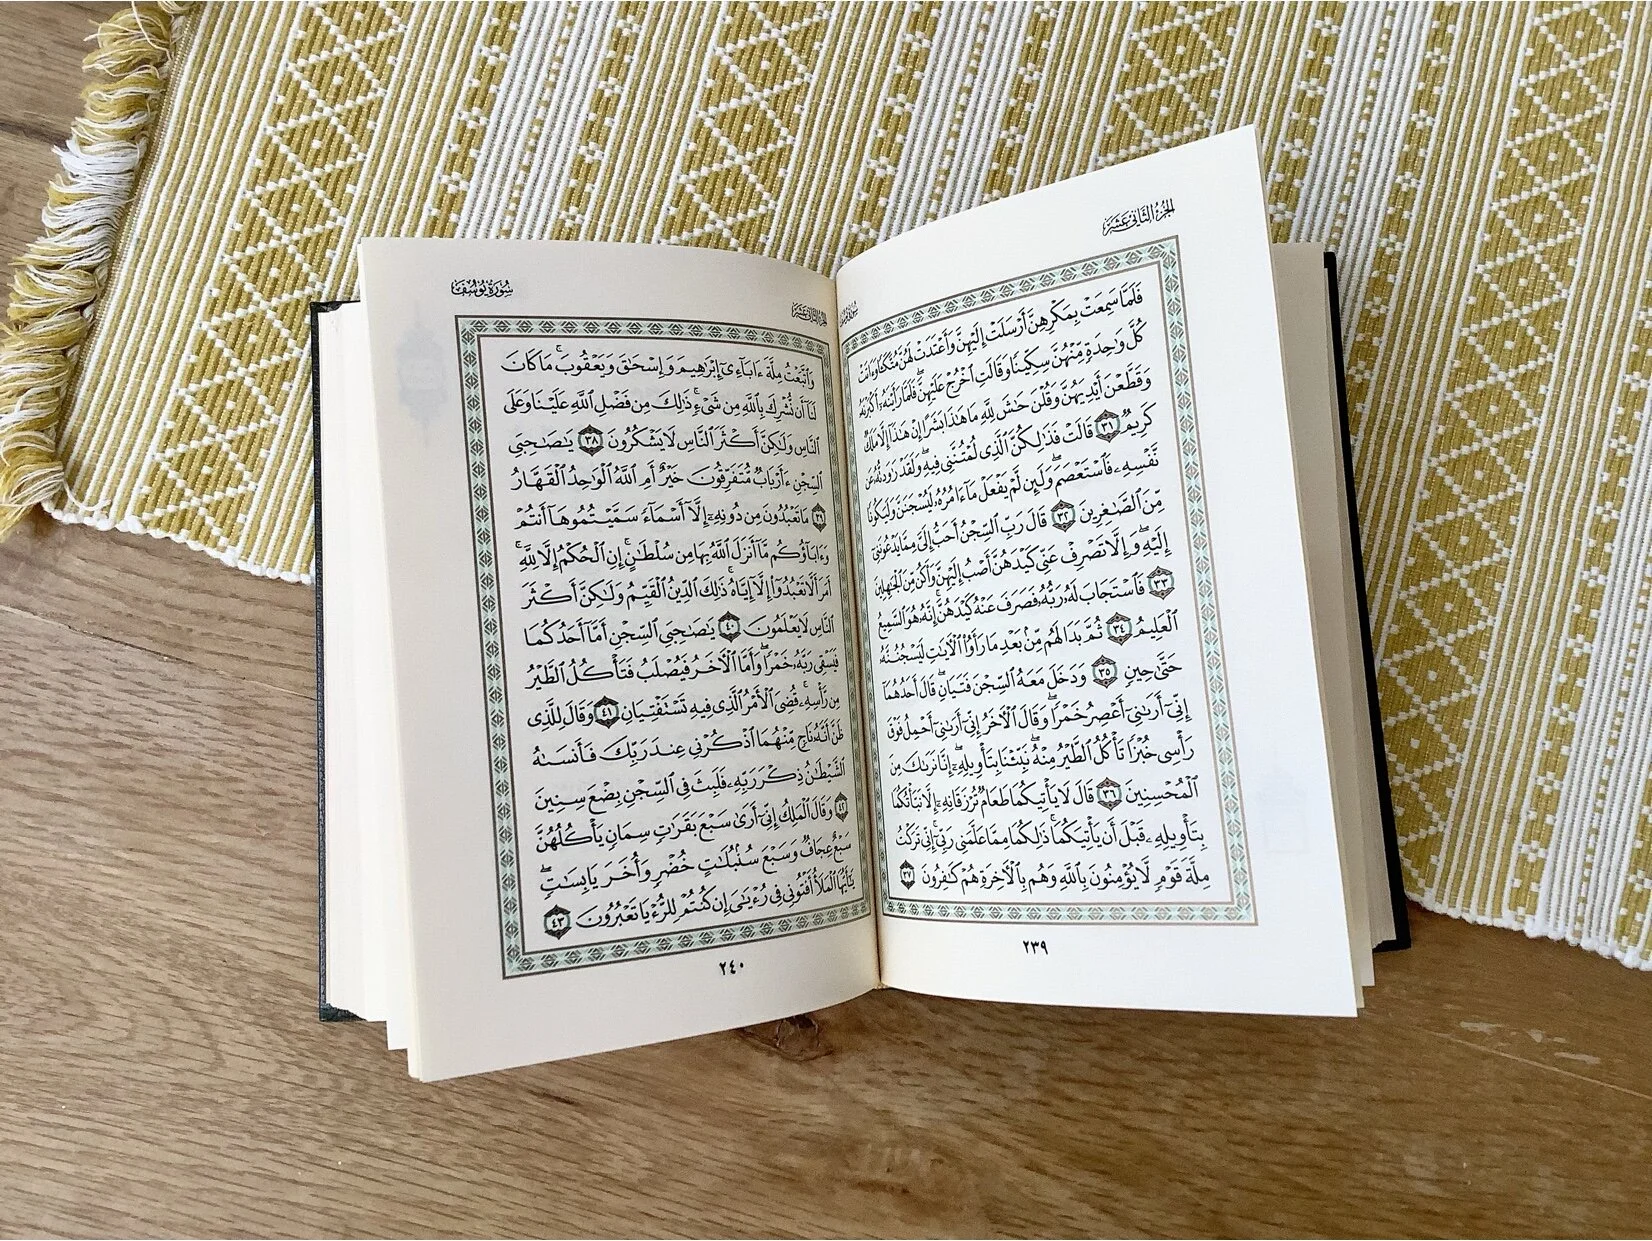 الجزء الثاني عشر
سورة يوسف
فَلَمَّا سَمِعَتْ بِمَكْرِهِنَّ أَرْسَلَتْ إِلَيْهِنَّ وَأَعْتَدَتْ لَهُنَّ مُتَّكَـًٔا وَءَاتَتْ
كُلَّ وَٰحِدَةٍ مِّنْهُنَّ سِكِّينًا وَقَالَتِ ٱخْرُجْ عَلَيْهِنَّ ۖ فَلَمَّا رَأَيْنَهُۥٓ أَكْبَرْنَهُۥ
وَقَطَّعْنَ أَيْدِيَهُنَّ وَقُلْنَ حَٰشَ لِلَّهِ مَا هَٰذَا بَشَرًا إِنْ هَٰذَآ إِلَّا مَلَكٌ
كَرِيمٌ ٣١ قَالَتْ فَذَٰلِكُنَّ ٱلَّذِى لُمْتُنَّنِى فِيهِ ۖ وَلَقَدْ رَٰوَدتُّهُۥ عَن
نَّفْسِهِۦ فَٱسْتَعْصَمَ ۖ وَلَئِن لَّمْ يَفْعَلْ مَآ ءَامُرُهُۥ لَيُسْجَنَنَّ وَلَيَكُونًا
مِّنَ ٱلصَّٰغِرِينَ ٣٢ قَالَ رَبِّ ٱلسِّجْنُ أَحَبُّ إِلَىَّ مِمَّا يَدْعُونَنِىٓ
إِلَيْهِ ۖ وَإِلَّا تَصْرِفْ عَنِّى كَيْدَهُنَّ أَصْبُ إِلَيْهِنَّ وَأَكُن مِّنَ ٱلْجَٰهِلِينَ
٣٣ فَٱسْتَجَابَ لَهُۥ رَبُّهُۥ فَصَرَفَ عَنْهُ كَيْدَهُنَّ ۚ إِنَّهُۥ هُوَ ٱلسَّمِيعُ
ٱلْعَلِيمُ ٣٤ ثُمَّ بَدَا لَهُم مِّنۢ بَعْدِ مَا رَأَوُا۟ ٱلْـَٔايَٰتِ لَيَسْجُنُنَّهُۥ
حَتَّىٰ حِينٍ ٣٥ وَدَخَلَ مَعَهُ ٱلسِّجْنَ فَتَيَانِ ۖ قَالَ أَحَدُهُمَآ
إِنِّىٓ أَرَىٰنِىٓ أَعْصِرُ خَمْرًا ۖ وَقَالَ ٱلْـَٔاخَرُ إِنِّىٓ أَرَىٰنِىٓ أَحْمِلُ فَوْقَ
رَأْسِى خُبْزًا تَأْكُلُ ٱلطَّيْرُ مِنْهُ ۖ نَبِّئْنَا بِتَأْوِيلِهِۦٓ ۖ إِنَّا نَرَىٰكَ مِنَ
ٱلْمُحْسِنِينَ ٣٦ قَالَ لَا يَأْتِيكُمَا طَعَامٌ تُرْزَقَانِهِۦٓ إِلَّا نَبَّأْتُكُمَا
بِتَأْوِيلِهِۦ قَبْلَ أَن يَأْتِيَكُمَا ۚ ذَٰلِكُمَا مِمَّا عَلَّمَنِى رَبِّىٓ ۚ إِنِّى تَرَكْتُ
مِلَّةَ قَوْمٍ لَّا يُؤْمِنُونَ بِٱللَّهِ وَهُم بِٱلْـَٔاخِرَةِ هُمْ كَٰفِرُونَ ٣٧
٢٣٩
الجزء الثاني عشر
سورة يوسف
وَٱتَّبَعْتُ مِلَّةَ ءَابَآءِىٓ إِبْرَٰهِيمَ وَإِسْحَٰقَ وَيَعْقُوبَ ۚ مَا كَانَ
لَنَآ أَن نُّشْرِكَ بِٱللَّهِ مِن شَىْءٍ ۚ ذَٰلِكَ مِن فَضْلِ ٱللَّهِ عَلَيْنَا وَعَلَى
ٱلنَّاسِ وَلَٰكِنَّ أَكْثَرَ ٱلنَّاسِ لَا يَشْكُرُونَ ٣٨ يَٰصَٰحِبَىِ
ٱلسِّجْنِ ءَأَرْبَابٌ مُّتَفَرِّقُونَ خَيْرٌ أَمِ ٱللَّهُ ٱلْوَٰحِدُ ٱلْقَهَّارُ
٣٩ مَا تَعْبُدُونَ مِن دُونِهِۦٓ إِلَّآ أَسْمَآءً سَمَّيْتُمُوهَآ أَنتُمْ
وَءَابَآؤُكُم مَّآ أَنزَلَ ٱللَّهُ بِهَا مِن سُلْطَٰنٍ ۚ إِنِ ٱلْحُكْمُ إِلَّا لِلَّهِ ۚ
أَمَرَ أَلَّا تَعْبُدُوٓا۟ إِلَّآ إِيَّاهُ ۚ ذَٰلِكَ ٱلدِّينُ ٱلْقَيِّمُ وَلَٰكِنَّ أَكْثَرَ
ٱلنَّاسِ لَا يَعْلَمُونَ ٤٠ يَٰصَٰحِبَىِ ٱلسِّجْنِ أَمَّآ أَحَدُكُمَا
فَيَسْقِى رَبَّهُۥ خَمْرًا ۖ وَأَمَّا ٱلْـَٔاخَرُ فَيُصْلَبُ فَتَأْكُلُ ٱلطَّيْرُ
مِن رَّأْسِهِۦ ۚ قُضِىَ ٱلْأَمْرُ ٱلَّذِى فِيهِ تَسْتَفْتِيَانِ ٤١ وَقَالَ لِلَّذِى
ظَنَّ أَنَّهُۥ نَاجٍ مِّنْهُمَا ٱذْكُرْنِى عِندَ رَبِّكَ فَأَنسَىٰهُ
ٱلشَّيْطَٰنُ ذِكْرَ رَبِّهِۦ فَلَبِثَ فِى ٱلسِّجْنِ بِضْعَ سِنِينَ
٤٢ وَقَالَ ٱلْمَلِكُ إِنِّىٓ أَرَىٰ سَبْعَ بَقَرَٰتٍ سِمَانٍ يَأْكُلُهُنَّ
سَبْعٌ عِجَافٌ وَسَبْعَ سُنۢبُلَٰتٍ خُضْرٍ وَأُخَرَ يَابِسَٰتٍ ۖ
يَٰٓأَيُّهَا ٱلْمَلَأُ أَفْتُونِى فِى رُءْيَٰىَ إِن كُنتُمْ لِلرُّءْيَا تَعْبُرُونَ ٤٣
٢٤٠